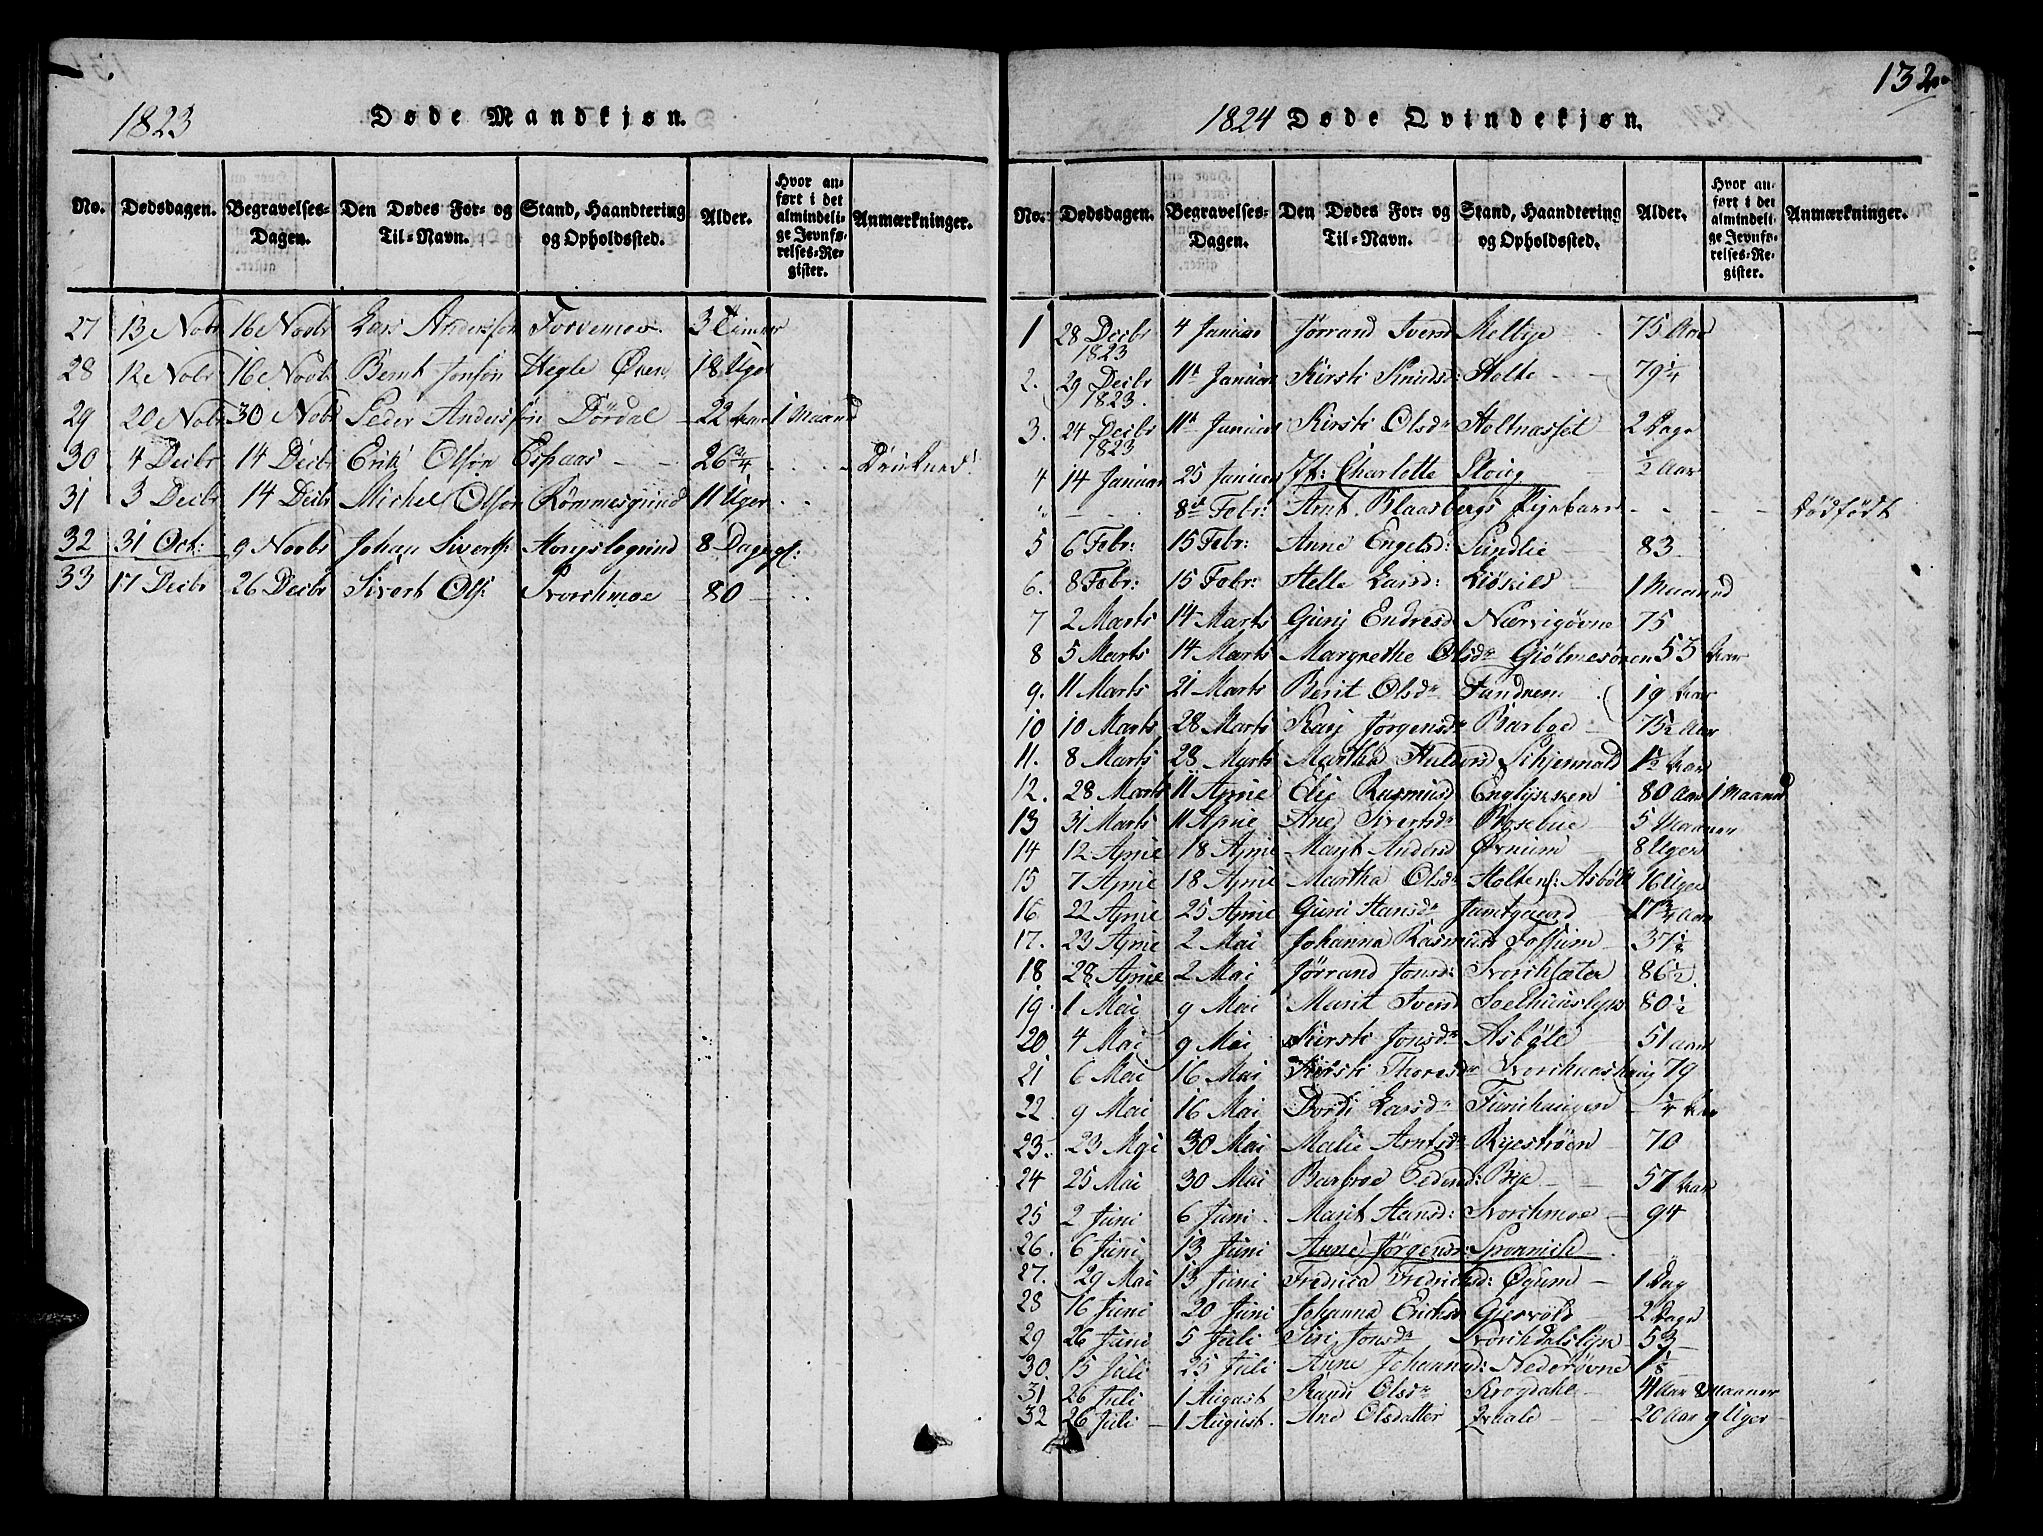 1823 Døde Mandkjøn.
No. Dødsdagen. Begravelses-Dagen. Den Dødes For- og Til-Navn. Stand, Haandtering og Opholdssted. Alder. Hvor anført i det almindelige Jevnførelses-Register. Anmærkninger.
27 13 Nobr 16 Novbr Lars Anderssøn Forvemoe 3 Timer
28 12 Nobr 16 Novb Bernt Jonsøn Hegle Øren 18 Uger
29 20 Nobr 30 Nobr Peder Anderssøn Dördal 22 Aar 1 Maaned
30 4 Decbr 14 Decbr Erik Olsøn Espaas 26 3/4 Druknet
31 3 Decbr 14 Decbr Michel Olsøn Rømmesgrind 11 Uger
32 31 Oct: 9 Novbr Johan Sivertss: 8 Dage
33 17 Decbr 26 Decbr Sivert Ols: Svorchmoe 80
132
1824 Døde Qvindekjøn.
No. Dødsdagen. Begravelses-Dagen. Den Dødes For- og Til-Navn. Stand, Haandtering og Opholdssted. Alder. Hvor anført i det almindelige Jevnførelses-Register. Anmærkninger.
1 28 Decbr 1823 4 Januar Jørrand Iversd Melbye 75 Aar
2. 29 Decbr 1823. 11 Januar Kirsti Knudsd: Holte 79 1/4
3. 24 Decbr 1823 11 Januar Kirsti Olsdr Holtnæsset 2 Dage
4 14 Januar 25 Januar Jf: Charlotte Ploug 1/2 Aar
" 8d Febr: Arnt Blaasbergs Pigebarn Dødfødt
5 6 Febr: 15 Febr: Anne Engelsd: Sundlie 83
6. 8 Febr: 15 Febr: Helle Larsd: 1 Maaned
7 2 Marts 14 Marts Gunj Endresd Nærvigøvne 75
8 5 Marts 14 Marts Margrethe Olsdr Giølmesøren 55 Aar
9. 11 Marts 21 Marts Berit Olsdr Fandrem 19 Aar
10 10 Marts 28 Marts Karj Jørgensdr Barboe 75 1/2 Aar
11. 8 Marts 28 Marts Martha Haldorsd Schjenvald 1 1/2 Aar
12. 28 Marts 11 Aprie Elie Rasmusd 80 Aar 1 Maaned
13 31 Marts 11 Aprie Ane Sivertsdr Rosebue 5 Maaner
14 12 Aprie 18 Aprie Marit Andersd 8 Uger
15 7 Aprie 18 Aprie Martha Olsdr Holten s: Asböle 16 Uger
16 22 Aprie 25 Aprie Guru Hansdr Jamtgaard 17 3/4 Aar
17. 23 Aprie 2 Mai Johanna Rasmusd Fossum 37 1/2
18 28 Aprie 2 Mai Jørrand Jonsd: Svorchsæter 86 1/2.
19. 1 Mai 9 Mai Marit Iversd 80 1/2
20 4 Mai 9 Mai Kirsti Jonsdr Asbøle 51 aar
21 6 Mai 16 Mai Kirsti Thoresdr Svorchaashaug 79
22. 9 Mai 16 Mai Dordi Larsdr 1/4 Aar
23. 23 Mai 30 Mai Malie Arntsdr Ryestrøen 70
24 25 Mai 30 Mai Barbroe Bye 57 Aar
25 2 Juni 6 Juni. Marit Hansd: Svorchmoe 94
26. 6 Juni 13 Juni Anne Jørgensdr: Sponmile
27. 29 Mai 13 Juni Fredrica Fredrichsd: Øyum 1 Dag
28 16 Juni 20 Juni Johanna Ericksdr Giesvold 2 Dage
29 26 Juni 5 Juli Siri Jonsdr Svorchdalslyk 53
30. 15 Juli 25 Juli Anne Johannsd: Nederøvne 1 1/8
31 26 Juli 1 August Randi Olsdr Krogdahl 41 Aar 8 Maaner
32 26 Juli 1 August. Ane Olsdatter 20 Aar 9 Uger